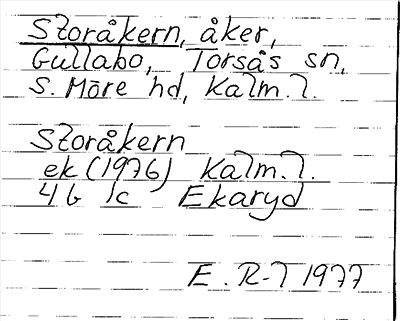 Storåkern, åker,
Gullabo, Torsås sn,
S. Möre hd, Kalm. l.
Storåkern
ek (1976) Kalm. l.
4 G 1c Ekaryd
E. R-l 1977